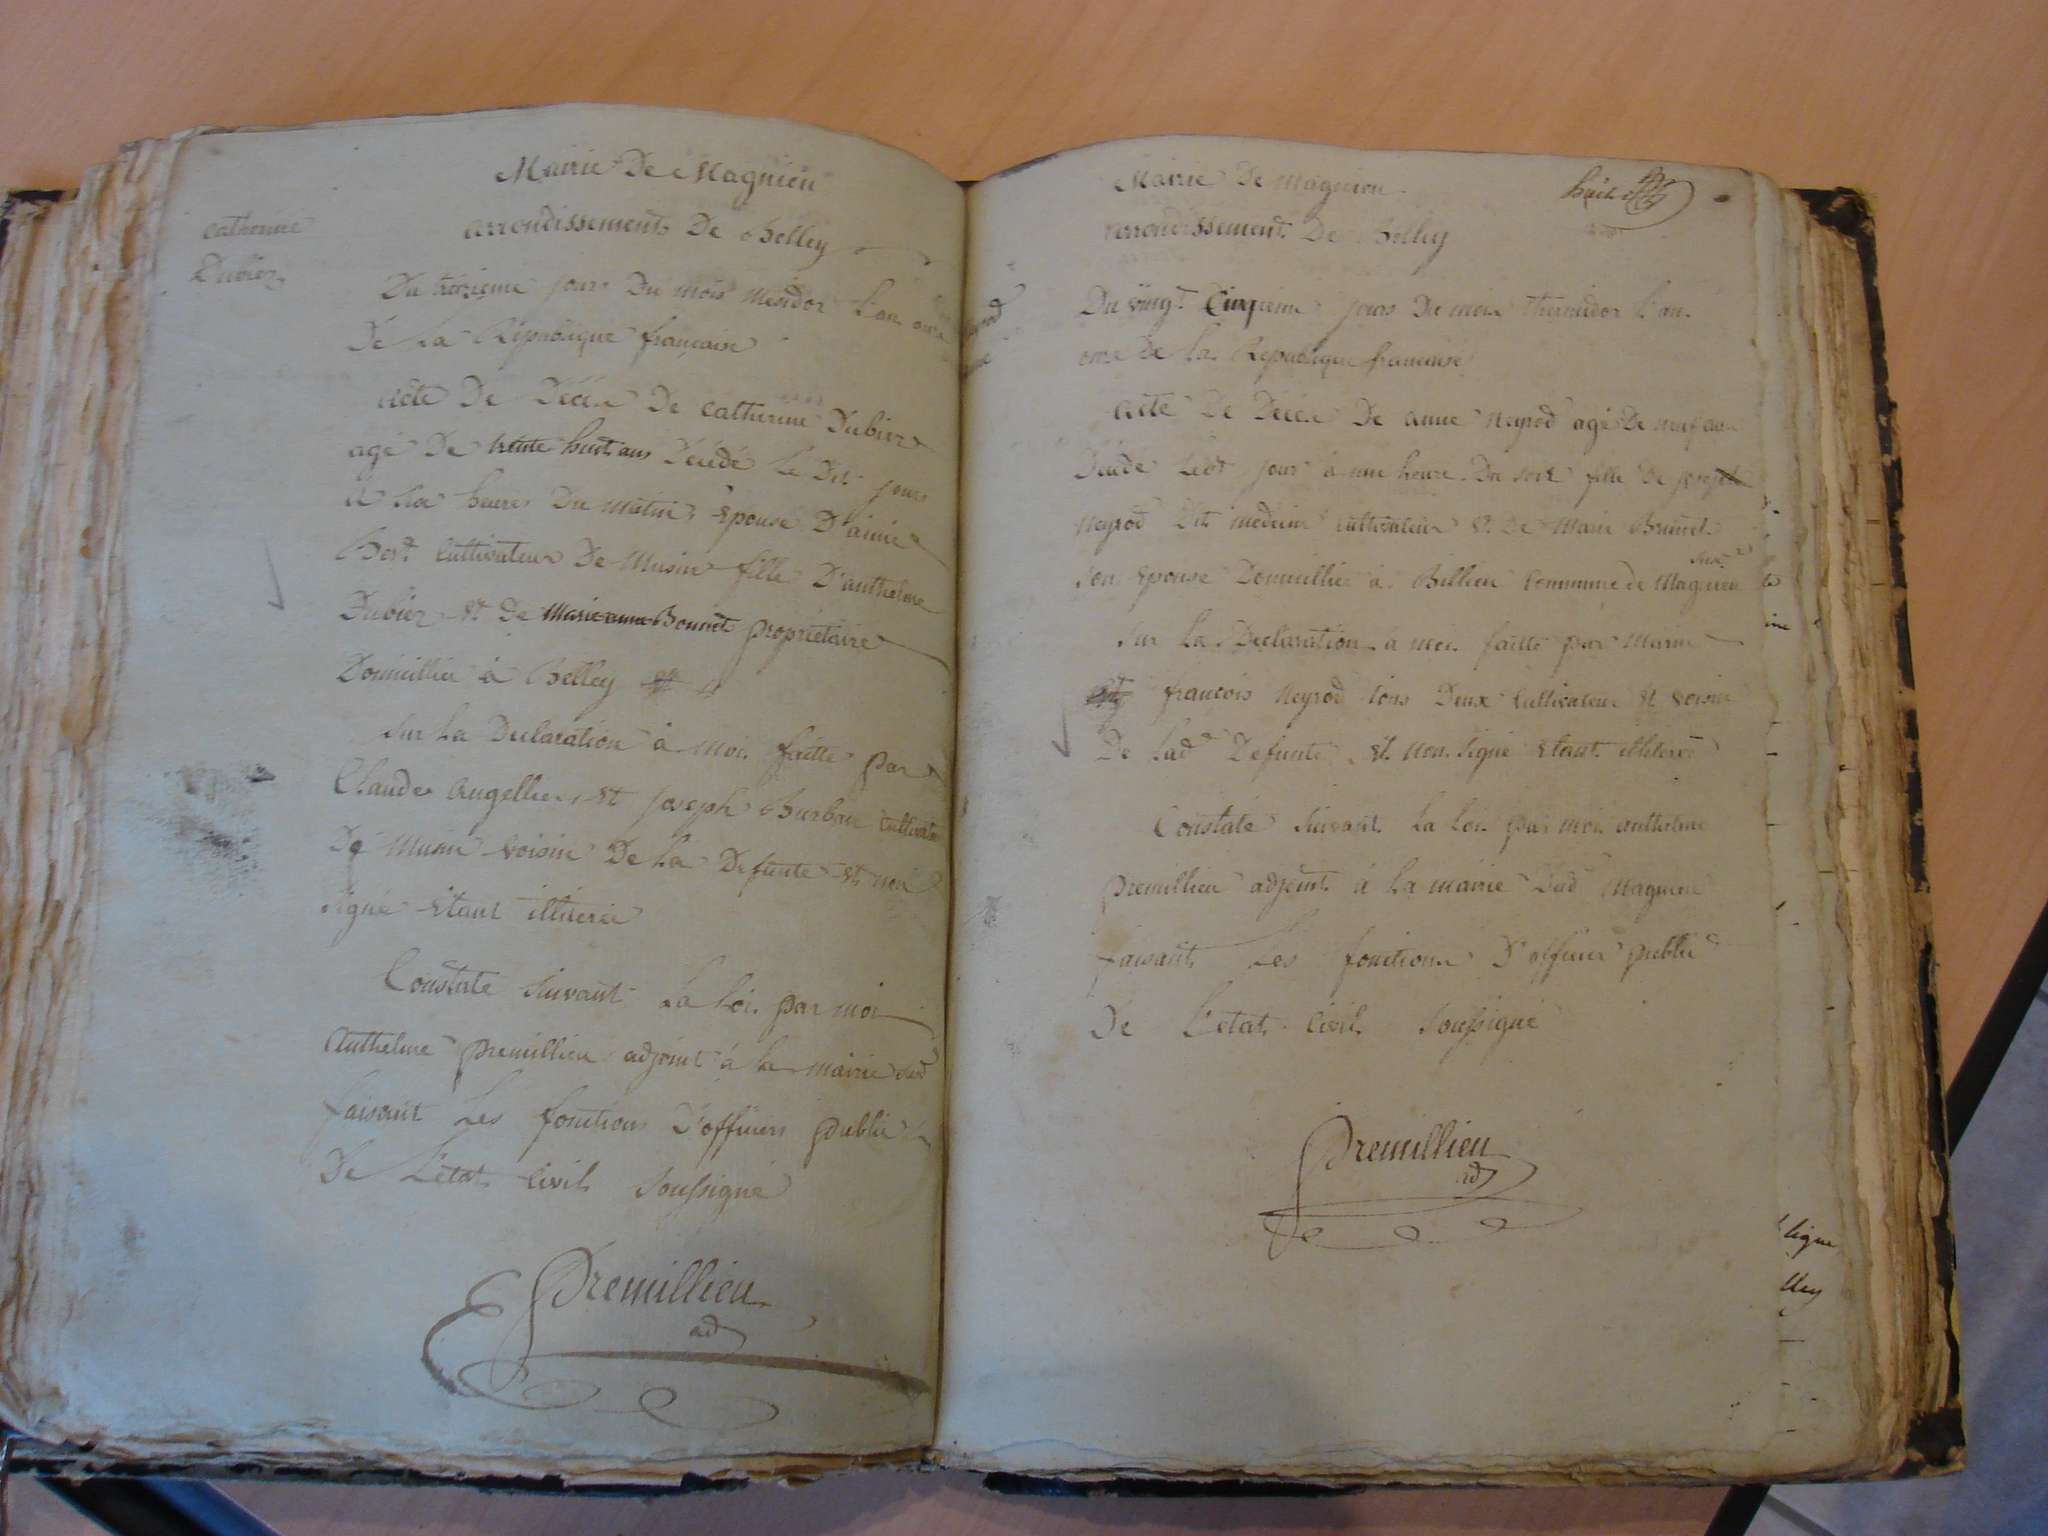 Mairie De Magnieu
arrondissement De Belley
Catherine
Dubiez
Du treizieme jours Du mois Mesidor L'an onze
De La Republique francaise
acte De Décéx De Catherine Dubiez
agé De trente huit ans Décédé Le Dit jours
a six heures Du matin Epouse D'aimé
Bert Cultivateur De Musin fille D'anthelme
Dubiez Et De Marieanne Bonnet propriétaire
Domicillier à Belley
Sur La Declaration à moi faitte par
Claude Augellier Et Joseph Burban cultivateur
De Musin voisin De La Defunte Et non
signé Etant illiteré
Constaté Suivant La Loi par moi
Anthelme Premillieu adjoint à la mairie Sud
faisant Les fonctions D'officier public
De L'état Civil Soussigné
Premillieu
ad
Mairie De Magnieu
huit
arrondissement De Belley
Du vingt Cinqieme jours Du mois thermidor L'an
onze De La Republique francaise
acte De Décéx De anne Neyrod agé De neuf ans
Décéde Ledt jour à une heure Du soir fille De Joseph
Neyrod Dit medecin cultivateur Et De Marie Brunet
Son Epouse Domicillier à Billieu Commune de Magnieu
Sur La Declaration a moi faitte par Marin
françois Neyrod tous Deux Cultivateur Et voisin
De Lad Defunte Et non signé Etant illiteré
Constaté Suivant La Loi par moi anthelme
premillieu adjoint à La mairie Dud Magnieu
faisant Les fonctions D'officier public
De L'état Civil Soussigné
Premillieu
ad
ligne
lley